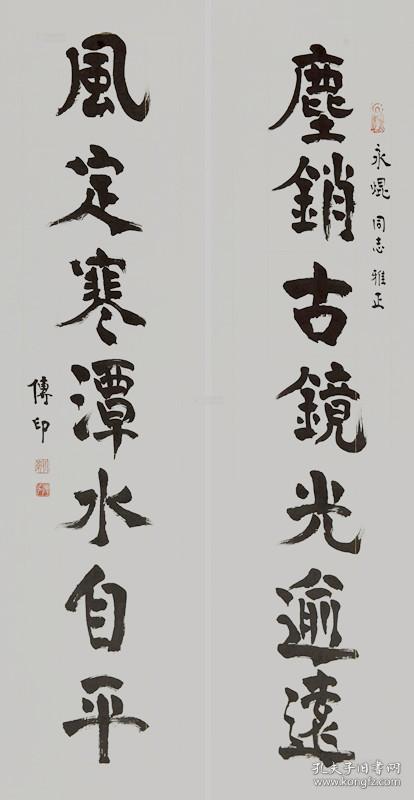 永焜同志雅正
塵銷古鏡光逾遠
風定寒潭水自平
傳印
孔夫子旧书网